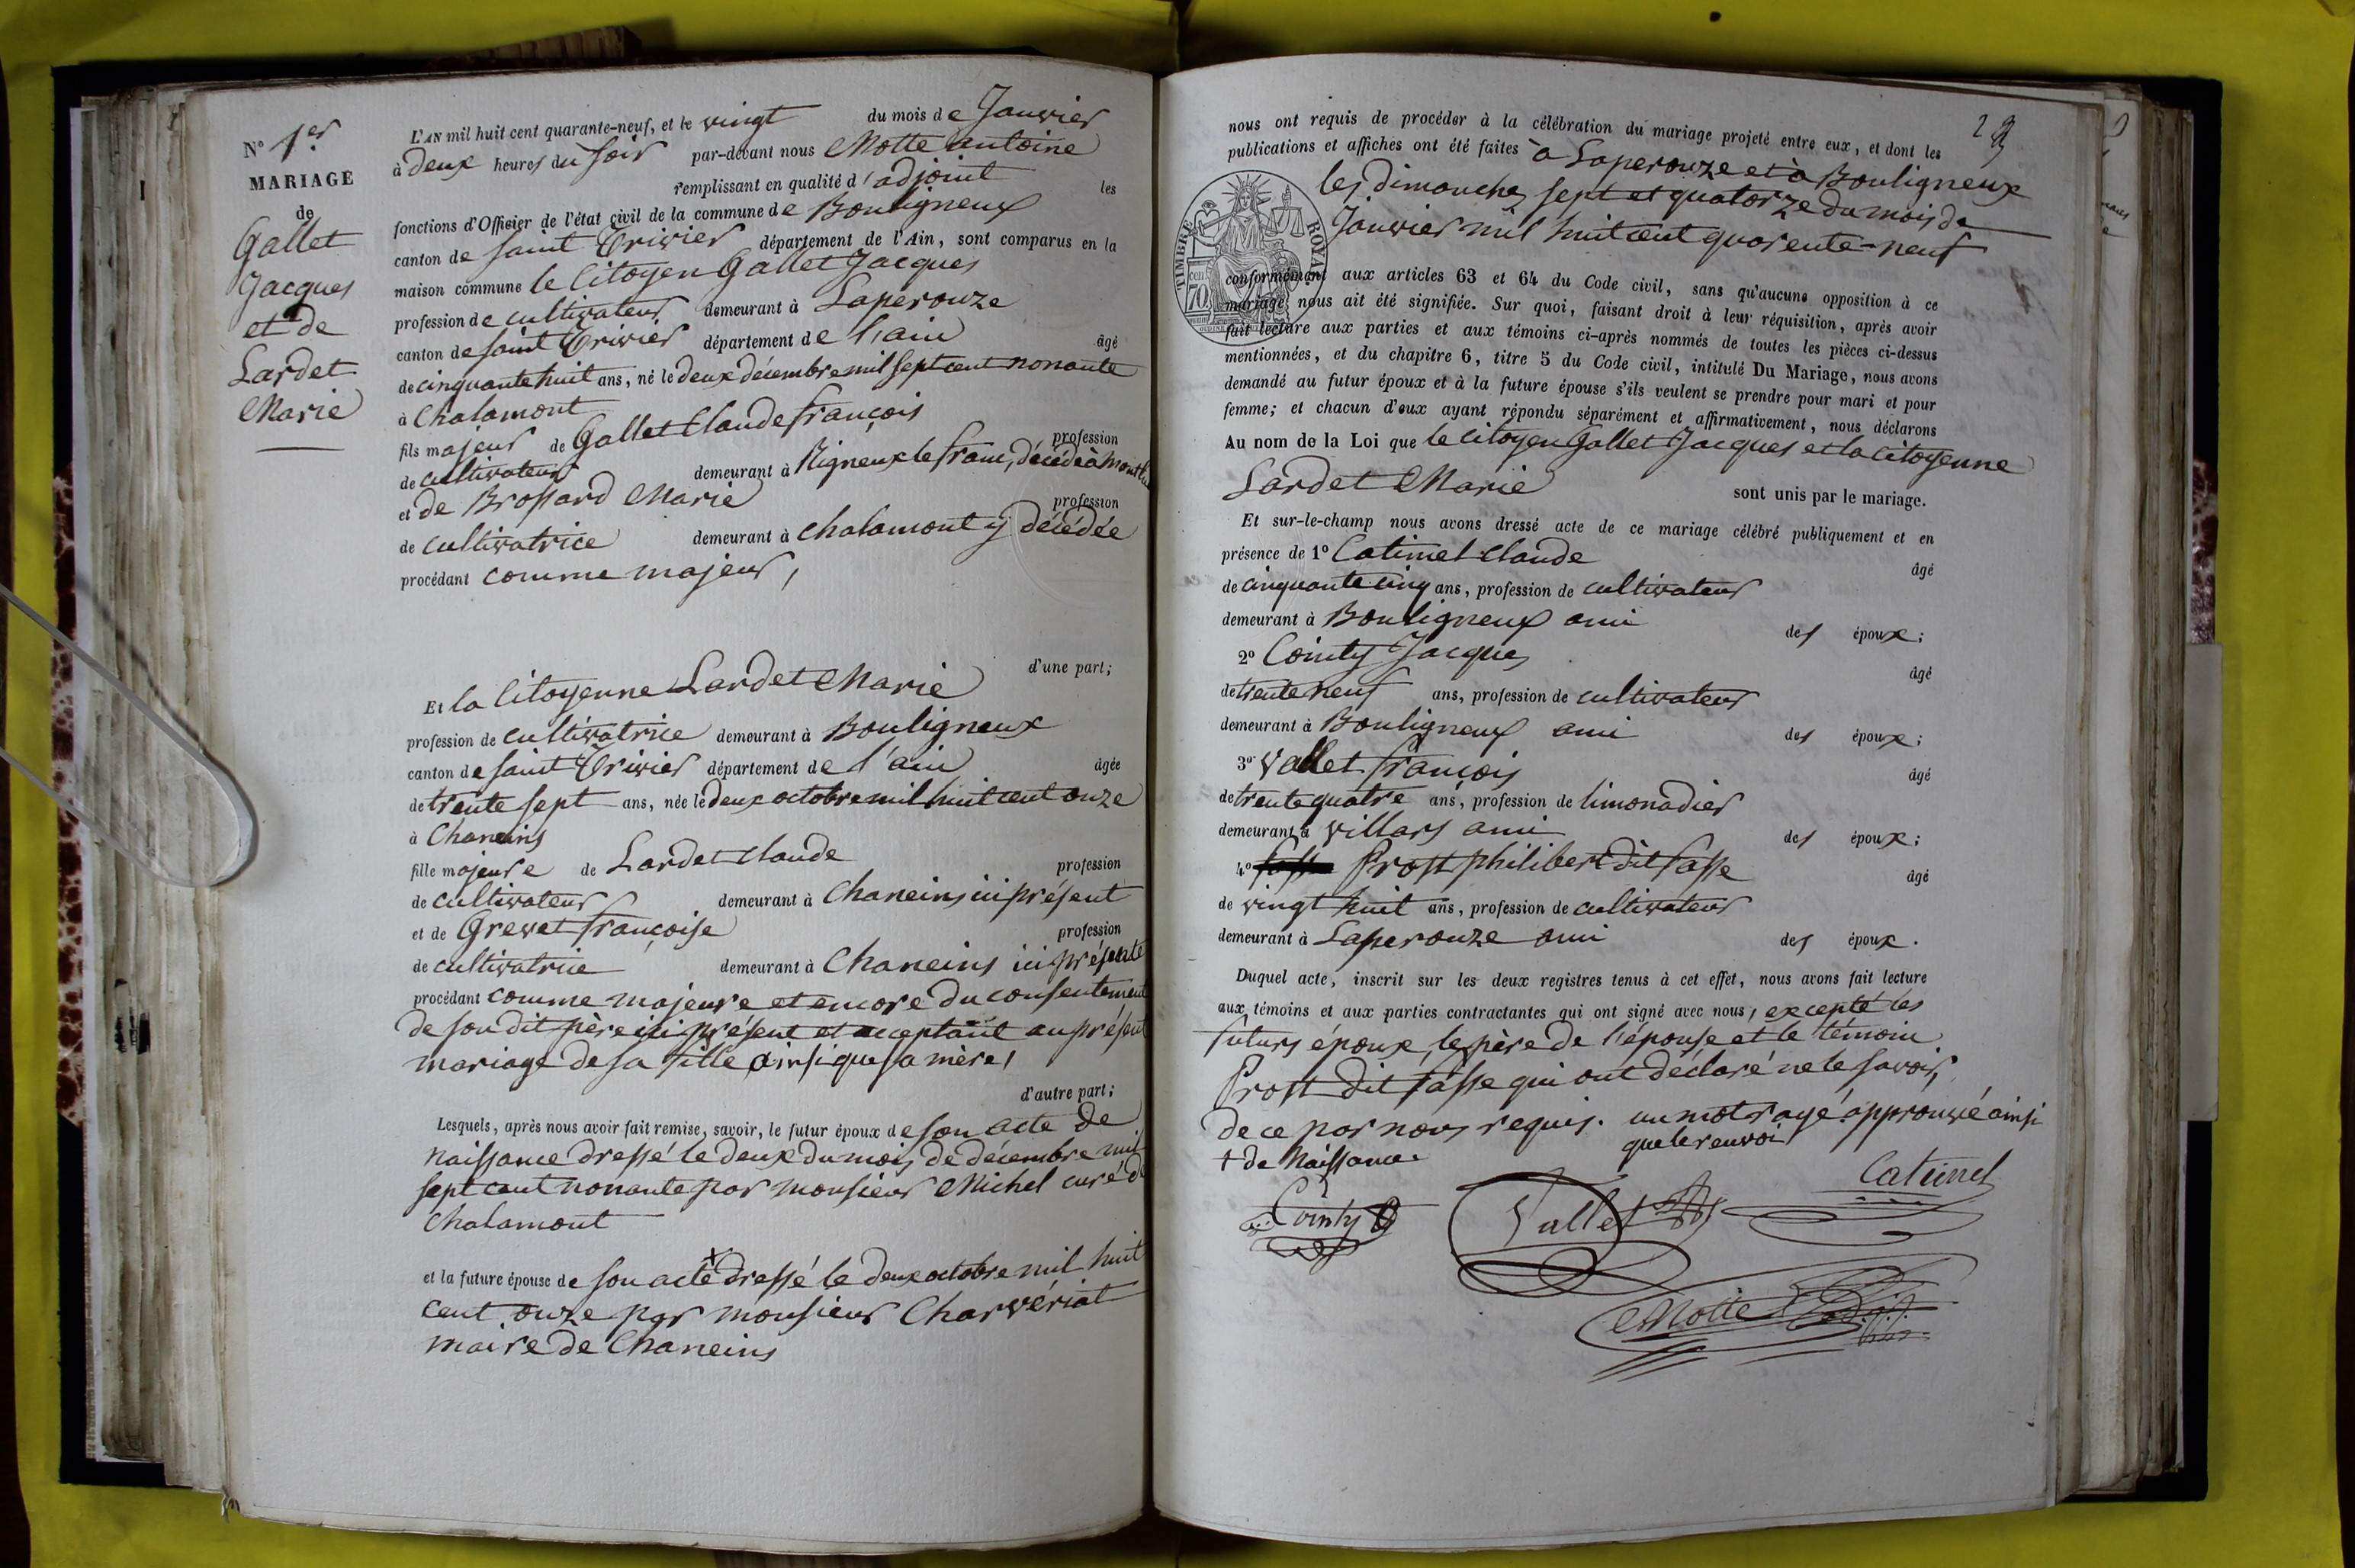 N° 1er
MARIAGE
de
Gallet
Jacques
et de
Lardet
Marie
L'AN mil huit cent quarante-neuf, et le vingt du mois de Janvier
à deux heures du soir par-devant nous Motte antoine
remplissant en qualité d'adjoint les
fonctions d'Officier de l'état civil de la commune de Bouligneux
canton de saint Trivier département de l'Ain, sont comparus en la
maison commune le Citoyen Gallet Jacques
profession de cultivateur demeurant à Laperouze
canton de saint Trivier département de l'ain âgé
de cinquante huit ans, né le deux décembre mil sept cent nonante
à Chalamont
fils majeur de Gallet Claude françois profession
de cultivateur demeurant à Rigneux le franc, décédé à
et de Brossard Marie profession
de cultivatrice demeurant à Chalamont y décédée
procédant comme majeur,
d'une part;
Et la Citoyenne Lardet Marie
profession de cultivatrice demeurant à Bouligneux
canton de saint Trivier département de l'ain âgée
de trente sept ans, née le deux octobre mil huit cent onze
à Chaneins
fille majeure de Lardet Claude profession
de cultivateur demeurant à Chaneins ici présent
et de Grevet françoise profession
de cultivatrice demeurant à Chaneins ici présente
procédant comme majeure et encore du consentement
de son dit père ici présent et acceptant au présent
mariage de sa fille ainsi que sa mère,
d'autre part;
Lesquels, après nous avoir fait remise, savoir, le futur époux de son acte de
naissance dressé le deux du mois de décembre mil
sept cent nonante par monsieur Michel curé de
Chalamont
et la future épouse de son acte + dressé le deux octobre mil huit
cent onze par monsieur Charvériat
maire de Chaneins
nous ont requis de procéder à la célébration du mariage projeté entre eux, et dont les
publications et affiches ont été faites à Laperouze et à Bouligneux
les dimanches sept et quatorze du mois de
Janvier mil huit cent quarente-neuf
TIMBRE ROYAL
70
conformément aux articles 63 et 64 du Code civil, sans qu'aucune opposition à ce
mariage nous ait été signifiée. Sur quoi, faisant droit à leur réquisition, après avoir
fait lecture aux parties et aux témoins ci-après nommés de toutes les pièces ci-dessus
mentionnées, et du chapitre 6, titre 5 du Code civil, intitulé Du Mariage, nous avons
demandé au futur époux et à la future épouse s'ils veulent se prendre pour mari et pour
femme; et chacun d'eux ayant répondu séparément et affirmativement, nous déclarons
Au nom de la Loi que le citoyen Gallet Jacques et la citoyenne
Lardet Marie sont unis par le mariage.
Et sur-le-champ nous avons dressé acte de ce mariage célébré publiquement et en
présence de 1° Catimel Claude âgé
de cinquante cinq ans, profession de cultivateur
demeurant à Bouligneux ami des époux;
2° Cointy Jacques âgé
de trente neuf ans, profession de cultivateur
demeurant à Bouligneux ami des époux;
3° Vallet françois âgé
de trente quatre ans, profession de limonadier
demeurant à villars ami des époux;
4° Prost philibert dit fasse âgé
de vingt huit ans, profession de cultivateur
demeurant à Laperouze ami des époux.
Duquel acte, inscrit sur les deux registres tenus à cet effet, nous avons fait lecture
aux témoins et aux parties contractantes qui ont signé avec nous, excepté les
futurs époux, le père de l'épouse et le témoin
Prost dit fasse qui ont déclaré ne le savoir,
de ce par nous requis. un mot rayé approuvé ainsi
que le renvoi
+ de Naissance.
Catimel
Cointy
Vallet
Motte adj.